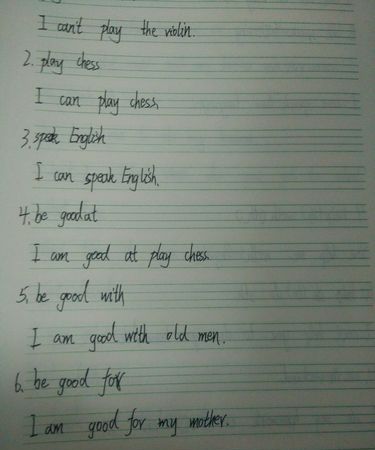 I can't play the violin.
2. play chess
I can play chess.
3. speak English
I can speak English.
4. be good at
I am good at play chess.
5. be good with
I am good with old men.
6. be good for
I am good for my mother.